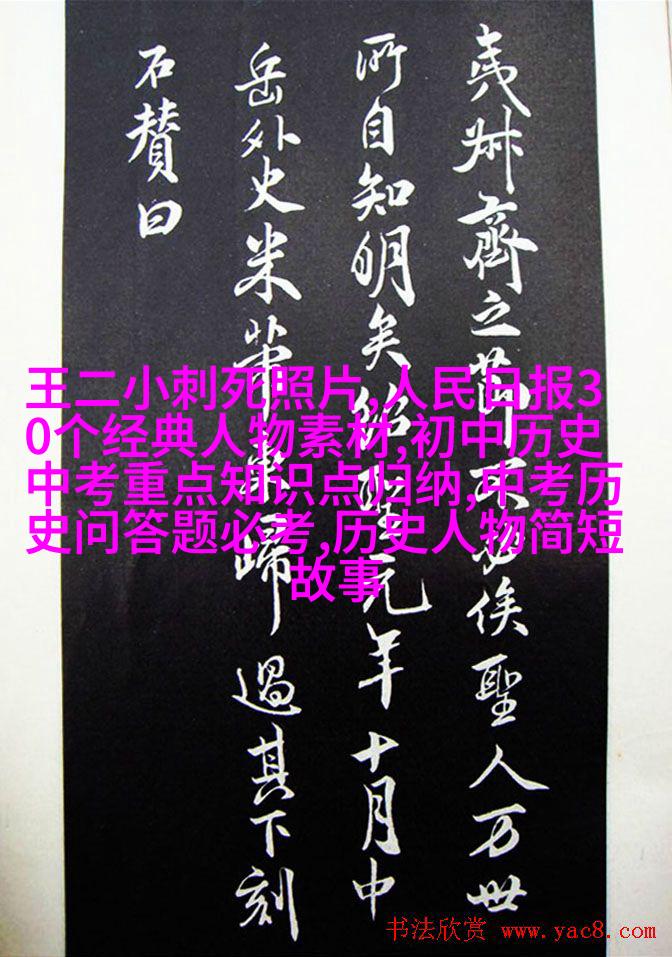 夷叔齊之節不必俟聖人万世
所自知明矣紹聖元年十月中
岳外史米芾東歸過其下刻
石賛曰
王二小刺死照片,人民日报3
0个经典人物素材,初中历史
中考重点知识点归纳,中考历
史问答题必考,历史人物简短
故事
书法欣赏 www.yac8.com